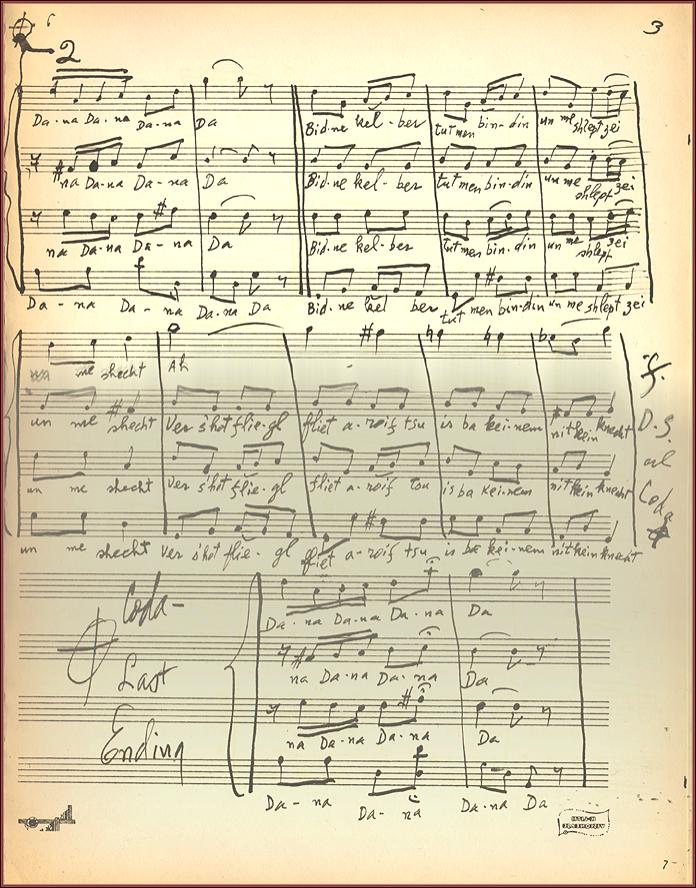 3
2
Da-na Da-na Da-na Da Bid-ne kel-ber tut men bin-din un me shlept zei
na Da-na Da-na Da Bid-ne kel-ber tut men bin-din un me shlept zei
na Da-na Da-na Da Bid-ne kel-ber tut men bin-din un me shlept zei
Da-na Da-na Da-na Da Bid-ne kel ber tut men bin-din un me shlept zei
me shecht Ah
un me shecht Ver s'hot flie-gl fliet a-roif tsu is ba kei-nem nit kein knecht
un me shecht Ver s'hot flie-gl fliet a-roif tsu is ba kei-nem nit kein knecht
un me shecht Ver s'hot flie-gl fliet a-roif tsu is ba kei-nem nit kein knecht
D.S.
al
Coda
Coda-
Last
Ending
Da-na Da-na Da-na Da
na Da-na Da-na Da
na Da-na Da-na Da
Da-na Da-na Da-na Da